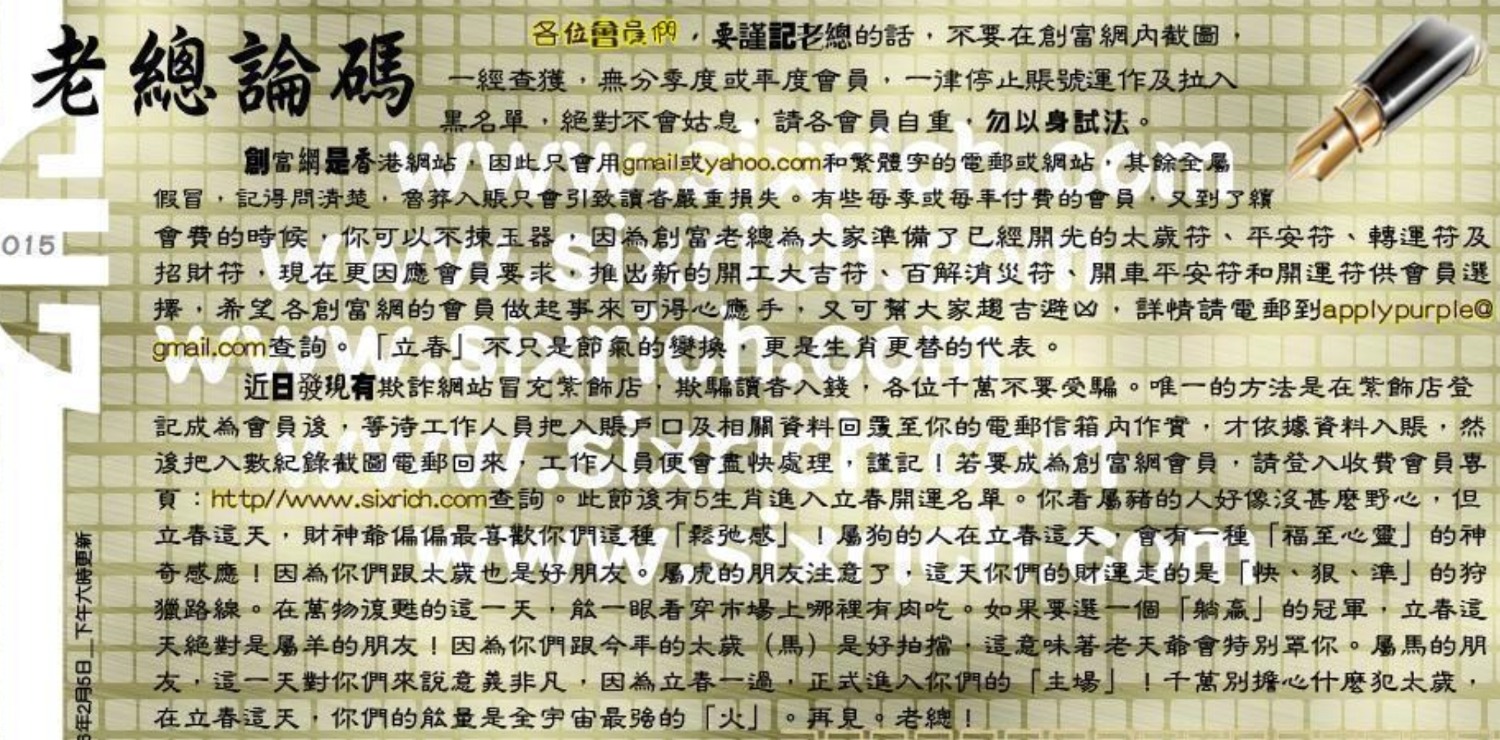 老總論碼
各位會員們，要謹記老總的話，不要在創富網內截圖，
一經查獲，無分季度或年度會員，一律停止賬號運作及拉入
黑名單，絕對不會姑息，請各會員自重，勿以身試法。
創富網是香港網站，因此只會用gmail或yahoo.com和繁體字的電郵或網站，其餘全屬
假冒，記得問清楚，魯莽入賬只會引致讀者嚴重損失。有些每季或每年付費的會員，又到了續
會費的時候，你可以不揀玉器，因為創富老總為大家準備了已經開光的太歲符、平安符、轉運符及
招財符，現在更因應會員要求，推出新的開工大吉符、百解消災符、開車平安符和開運符供會員選
擇，希望各創富網的會員做起事來可得心應手，又可幫大家趨吉避凶，詳情請電郵到applypurple@
gmail.com查詢。「立春」不只是節氣的變換，更是生肖更替的代表。
近日發現有欺詐網站冒充紫飾店，欺騙讀者入錢，各位千萬不要受騙。唯一的方法是在紫飾店登
記成為會員後，等待工作人員把入賬戶口及相關資料回覆至你的電郵信箱內作實，才依據資料入賬，然
後把入數紀錄截圖電郵回來，工作人員便會盡快處理，謹記！若要成為創富網會員，請登入收費會員專
頁：http//www.sixrich.com查詢。此節後有5生肖進入立春開運名單。你看屬豬的人好像沒甚麼野心，但
立春這天，財神爺偏偏最喜歡你們這種「鬆弛感」！屬狗的人在立春這天，會有一種「福至心靈」的神
奇感應！因為你們跟太歲也是好朋友。屬虎的朋友注意了，這天你們的財運走的是「快、狠、準」的狩
獵路線。在萬物復甦的這一天，能一眼看穿市場上哪裡有肉吃。如果要選一個「躺贏」的冠軍，立春這
天絕對是屬羊的朋友！因為你們跟今年的太歲（馬）是好拍擋，這意味著老天爺會特別罩你。屬馬的朋
友，這一天對你們來說意義非凡，因為立春一過，正式進入你們的「主場」！千萬別擔心什麼犯太歲，
在立春這天，你們的能量是全宇宙最強的「火」。再見。老總！
015
6年2月5日__下午六時更新
www.sixrich.com
www.sixrich.com
www.sixrich.com
www.sixrich.com
www.sixrich.com